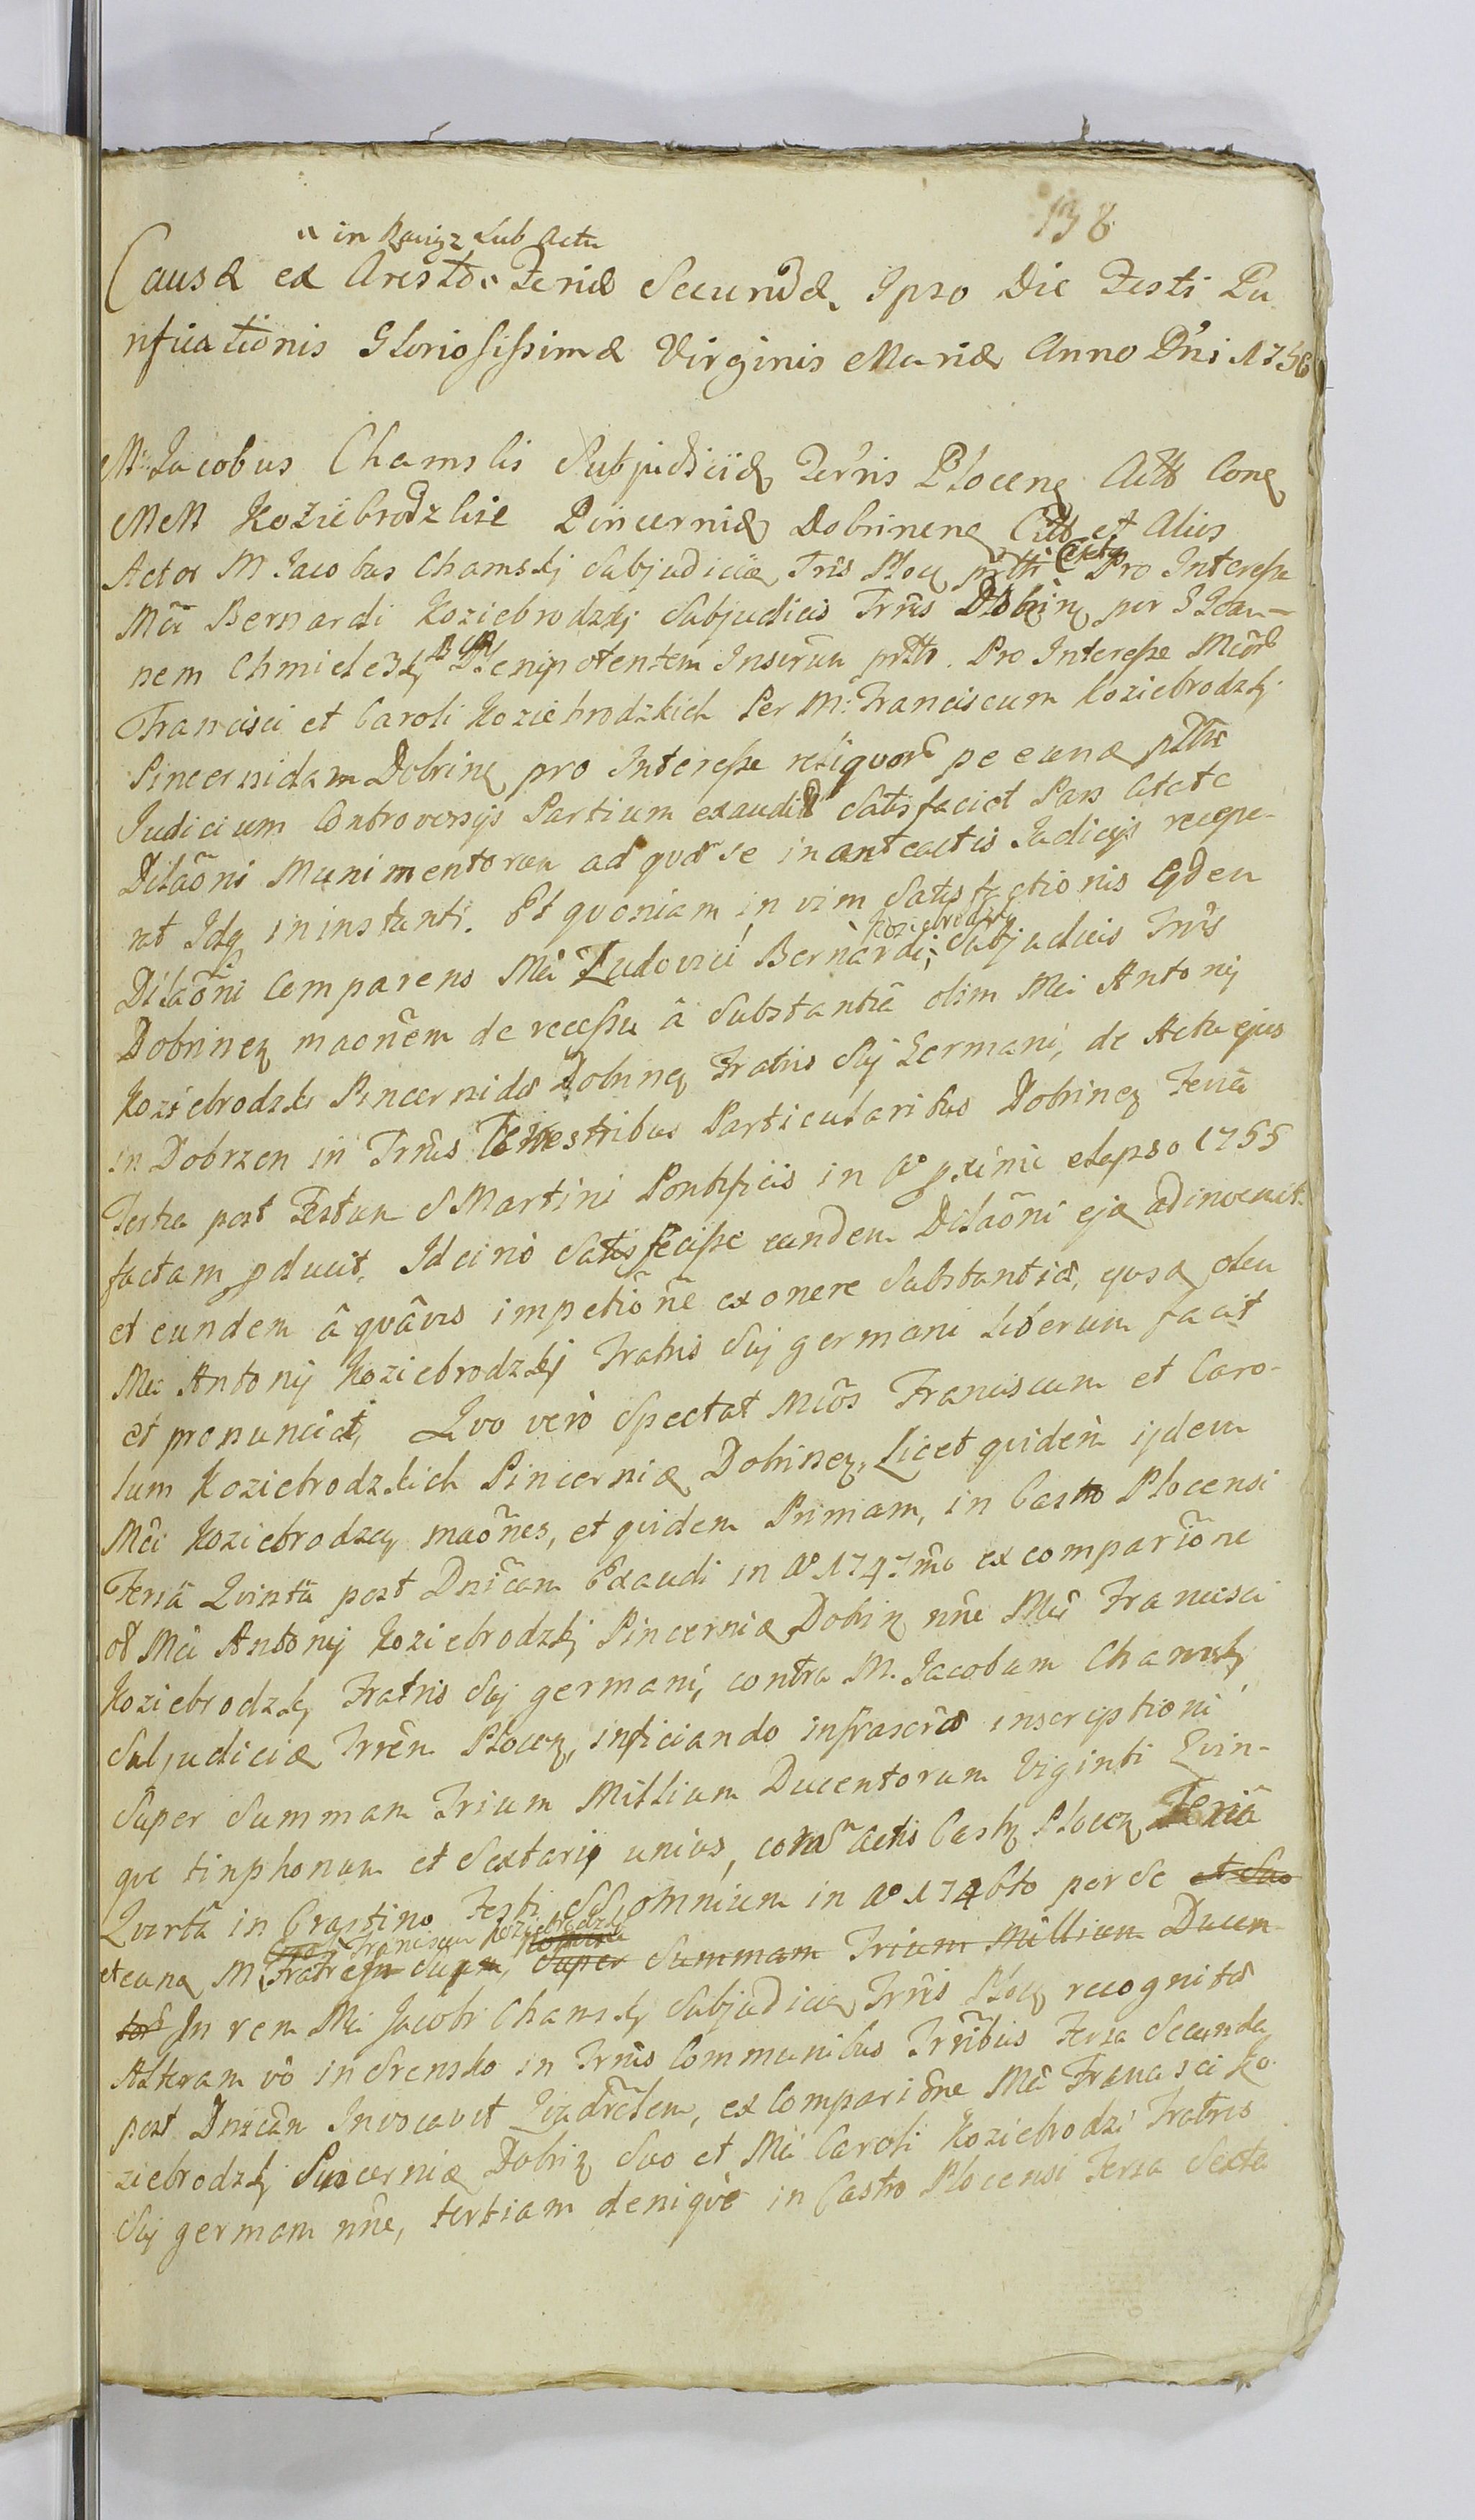 138
in Raciąz Sub Actu
Causæ ex Aresto Feriæ Secundæ Ipso Die Festi Pu
rificationis Gloriosissimæ Virginis Mariæ Anno Dni 1756
M: Jacobus Chamski Subjudicidæ Terris Plocen Actt Conq
MM Koziebrodzkie Pincernidæ Dobrinen Citt et Alios
Actor M Jacobus Chamskj Subjudiciæ Tris Plocen prtti Citt Pro Interesse
Mci Bernardi Koziebrodzkj Subjudicis Trris Dobrin per G Joan-
nem Chmieleskj Plenipotentem Inscrum prtti. Pro Interesse Mcor
Francisci et Caroli Koziebrodzkich Per M: Franciscum Koziebrodzkj
Pincernidam Dobrinen pro Interesse reliquor peccunæ prtti
Judicium Controversijs Partium exauditis Satisfaciet Pars Citata
Dilaoni Munimentorum ad qvæ se in anteactis Judicijs recepe-
rat Idq in instanti. Et qvoniam in vim Satisfactionis Eidem
Koziebrodzkj
Dilaoni Comparens Mci Ludovici Bernardi Subjudicis Trris
Dobrinen maonem de recessu â Substantiâ olim Mci Antonij
Koziebrodzki Pincernidæ Dobrinen Fratris Suj Germani, de Actu ejus
in Dobrzen in Trmis Terrestribus Particularibus Dobrinen Feriâ
Tertia post Festum S Martini Pontificis in Ao pximè elapso 1755
factam pducit, Idcirco Satisfecisse eundem Dilaoni ejæ adinvenit
et eundem â qvâvis impetione ex onere Substantiæ, qvsæ olim
Mci Antonij Koziebrodzkj Fratris Suj germani liberum facit
et pronunciat, Qvo verò Spectat Mcos Franciscum et Caro-
lum Koziebrodzkich Pincerniæ Dobrinen, Licet qvidem ijdem
Mci Koziebrodzcy maones, et qvidem Primam, in Castro Plocensi
Feriâ Qvintâ post Dnicam Exaudi in Ao 1747mo ex comparione
ol Mci Antonij Koziebrodzkj Pincerniæ Dobrin nne Mci Francisci
Koziebrodzkj Fratris Suj germani, contra M. Jacobum Chamskj
Subjudiciæ Trren Plocen, inficiando infrascrœ inscriptioni
Super Summam Trium Millium Ducentorum Viginti Qvin-
qve tinphonum et Sextarij unius, corâ Actis Castr Plocen Feriâ
Qvartâ in Crastino Festi SS omnium in Ao 1746to per Se et Suo
Franciscum Koziebrodzkj
et cum M Fratrem Suum, Super Summam Trium Millium Ducen
tor In rem Mci Jacobi Chamskj Subjudiciæ Trris Plocen recognitæ
Alteram vò in Srensko in Trmis Communibus Trribus Feria Secunda
post Dnicam Invocavit Qvadrlem, ex Comparione Mci Francisci Ko-
ziebrodzkj Pincerniæ Dobrin Suo et Mci Caroli Koziebrodzi Fratris
Suj germani nne, tertiam deniqvè in Castro Plocensi Feria Sexta